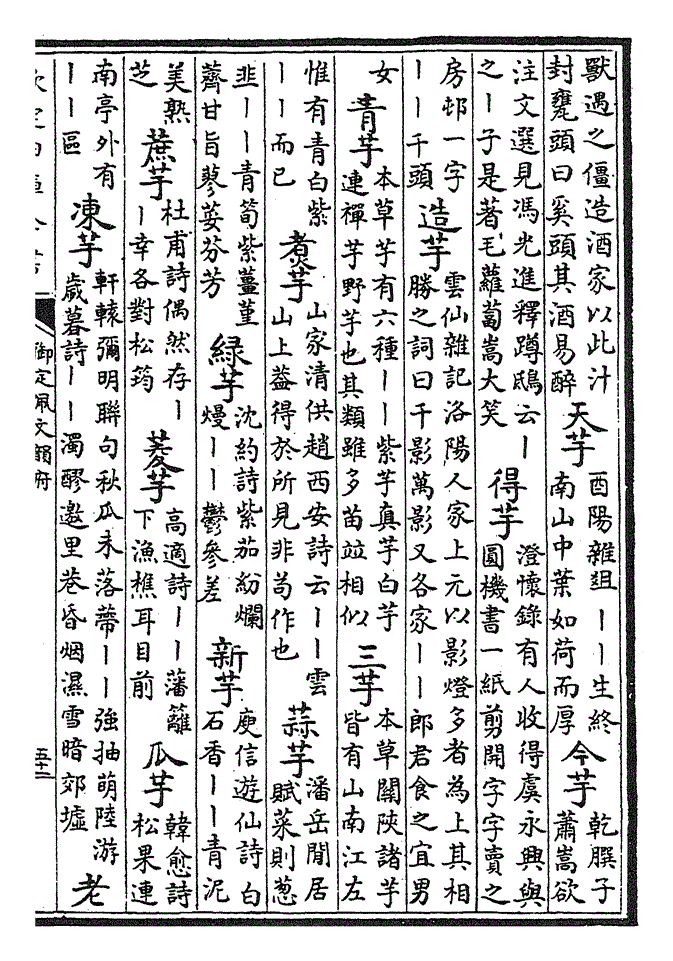 獸遇之僵造酒家以此汁
封甕頭曰奚頭其酒易醉
天芋
酉陽雜俎丨丨生終
南山中葉如荷而厚
今芋
乾𦠆子
蕭嵩欲
注文選見馮光進釋蹲鴟云丨
之丨子是著毛蘿蔔嵩大笑
得芋
澄懷錄有人收得虞永興與
圓機書一紙剪開字字賣之
房邨一字
丨丨千頭
造芋
雲仙雜記洛陽人家上元以影燈多者為上其相
勝之詞曰千影萬影又各家丨丨郎君食之宜男
女
青芋
本草芋有六種丨丨紫芋真芋白芋
連禪芋野芋也其類雖多苗竝相似
三芋
本草關陜諸芋
皆有山南江左
惟有青白紫
丨丨而已
煮芋
山家清供趙西安詩云丨丨雲
山上益得於所見非苟作也
蒜芋
潘岳閒居
賦菜則葱
韭丨丨青筍紫薑堇
薺甘旨蓼荾芬芳
緑芋
沈約詩紫茄紛爛
熳丨丨鬱參差
新芋
庾信遊仙詩白
石香丨丨青泥
美熟
芝
蔗芋
杜甫詩偶然存丨
丨幸各對松筠
菱芋
高適詩丨丨藩籬
下漁樵耳目前
瓜芋
韓愈詩
松果連
南亭外有
丨丨區
凍芋
軒轅彌明聯句秋瓜未落蔕丨丨強抽萌陸游
歲暮詩丨丨濁醪邀里巷昏烟濕雪暗郊墟
老
欽定四庫全書
御定佩文韻府